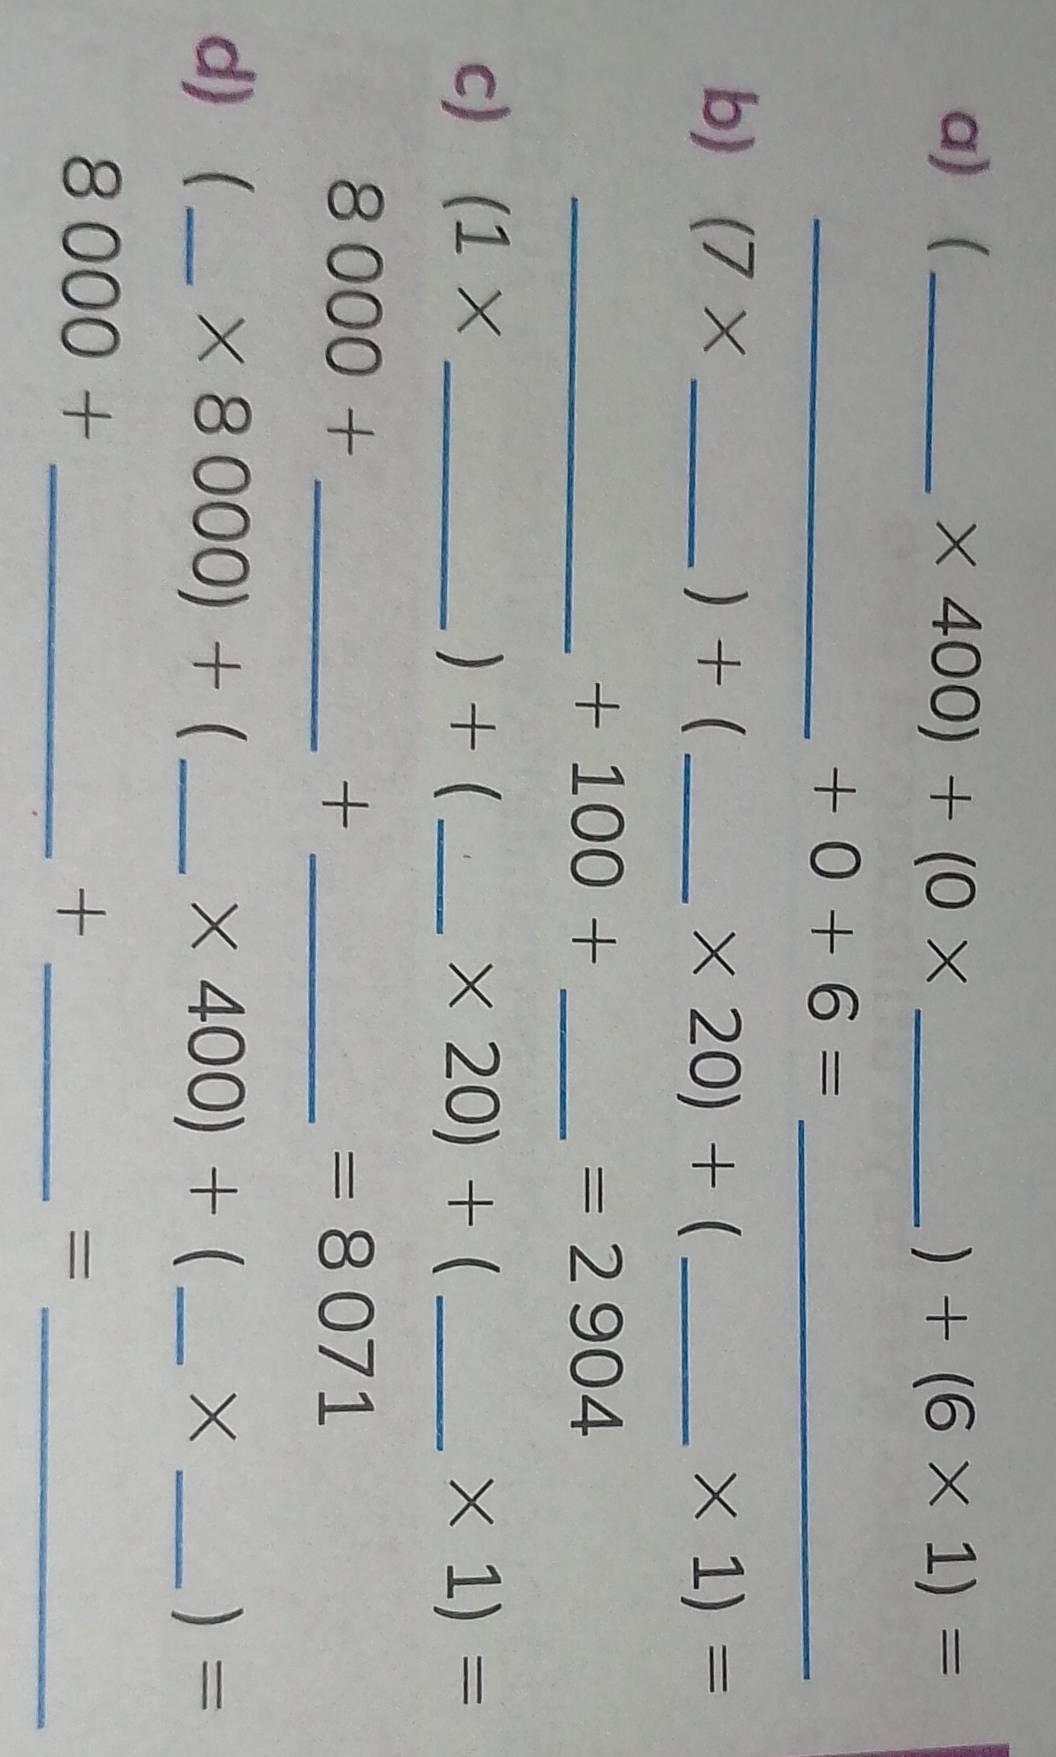 a) (____ × 400) + (0 × ____) + (6 × 1) =
____ + 0 + 6 = ____
b) (7 × ____) + (____ × 20) + (____ × 1) =
____ + 100 + ____ = 2 904
c) (1 × ____) + (____ × 20) + (____ × 1) =
8 000 + ____ + ____ = 8 071
d) (____ × 8 000) + (____ × 400) + (____ × ____) =
8 000 + ____ + ____ = ____